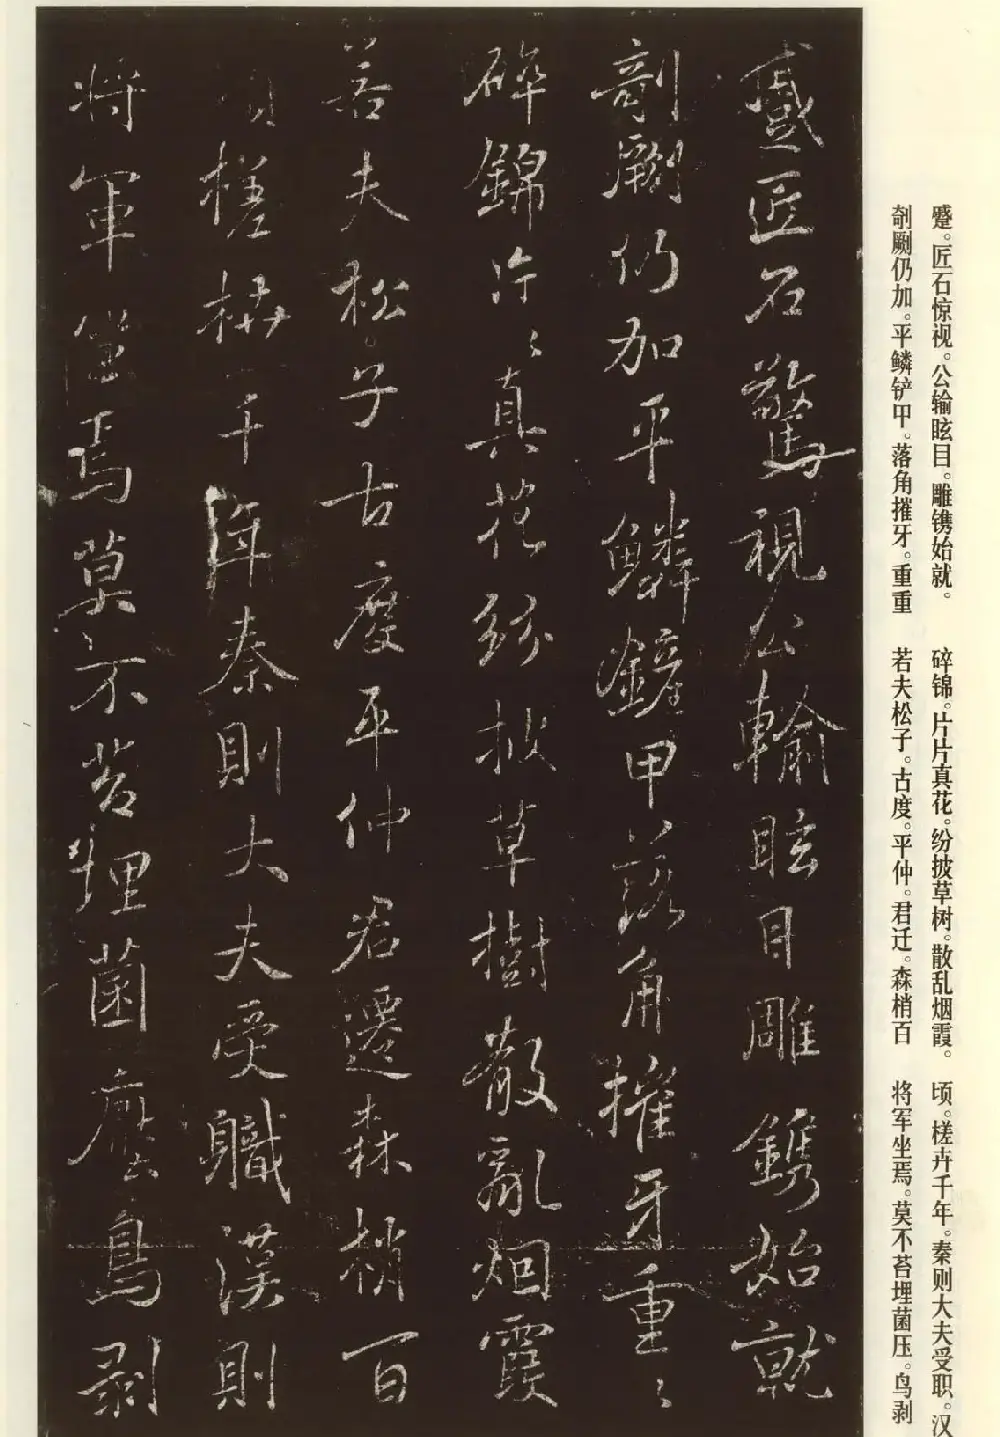 蹙。匠石惊视。公输眩目。雕镌始就。
剞劂仍加。平鳞铲甲。落角摧牙。重重
碎锦。片片真花。纷披草树。散乱烟霞。
若夫松子。古度。平仲。君迁。森梢百
顷。槎卉千年。秦则大夫受职。汉
将军坐焉。莫不苔埋菌压。鸟剥
蹙匠石驚視公輸眩目雕鐫始就
剞劂仍加平鱗鏟甲落角摧牙重〻
碎錦片〻真花紛披草樹散亂烟霞
若夫松子古度平仲君遷森梢百
頃槎枿千年秦則大夫受職漢則
將軍坐焉莫不苔埋菌壓鳥剥